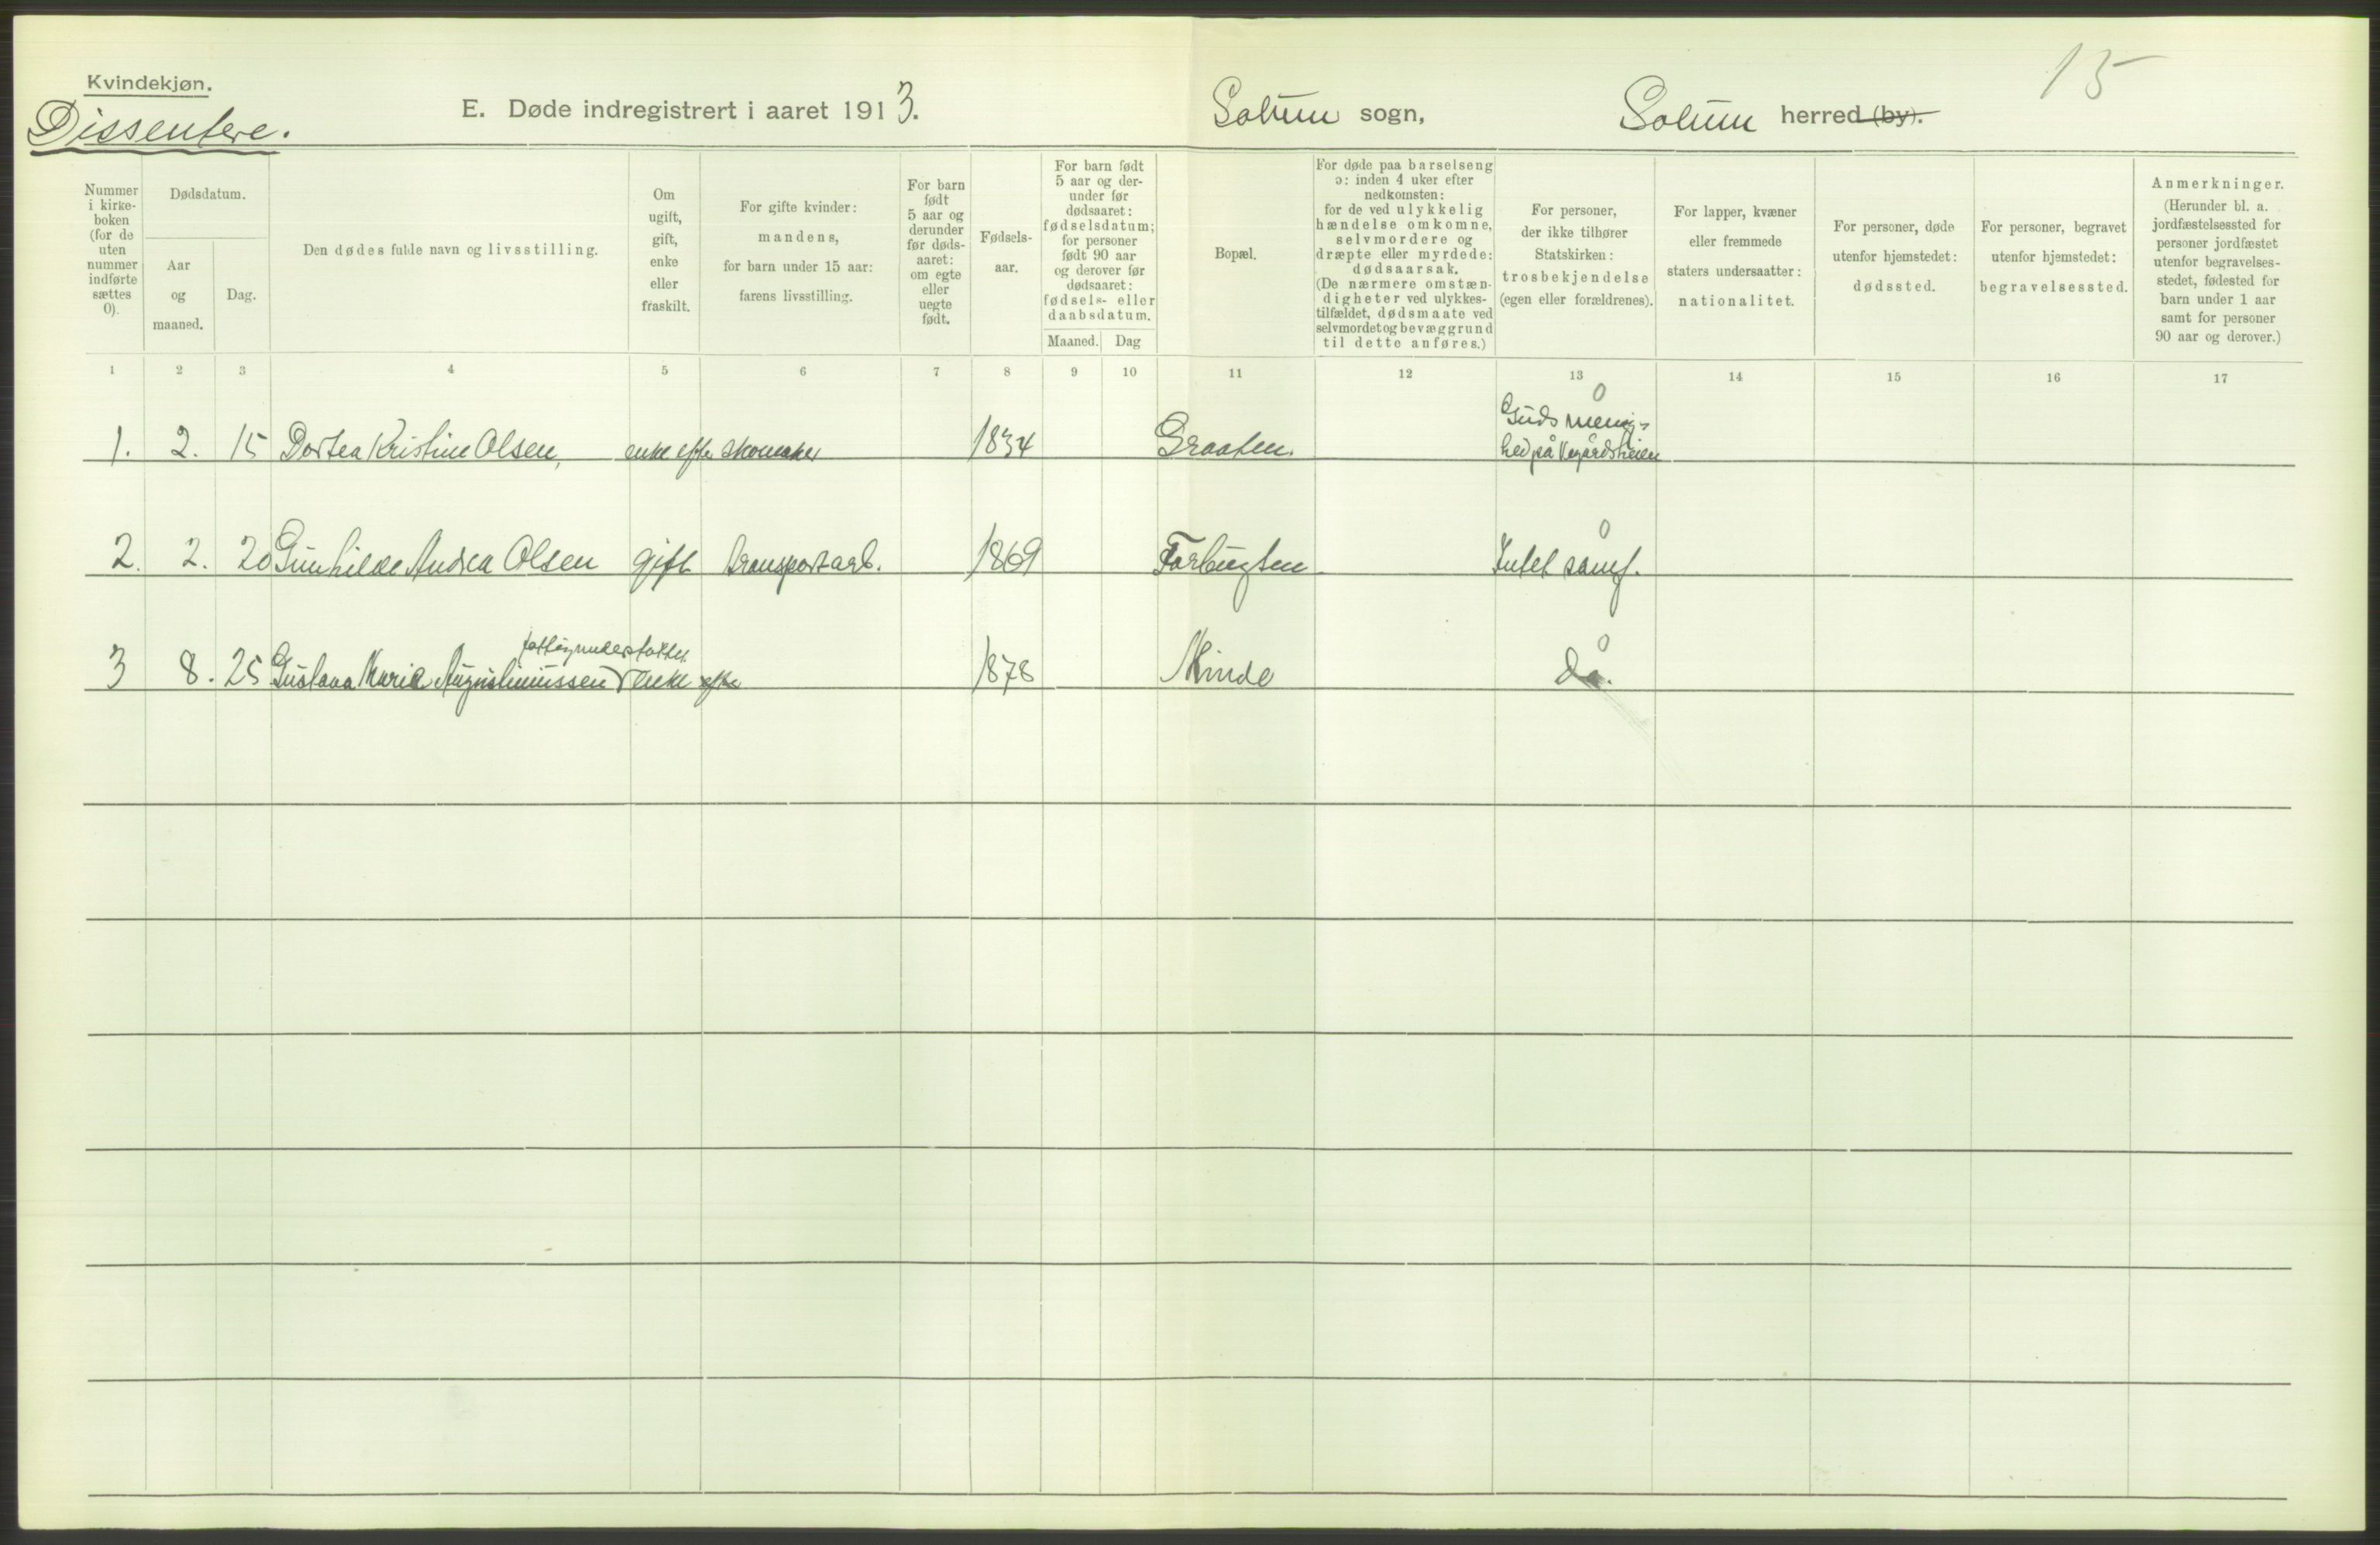 15
Kvindekjøn.
Dissentere.
E. Døde indregistrert i aaret 1913. Solum sogn, Solum herred (by).
Nummer i kirke- boken (for de uten nummer indførte sættes 0).
Dødsdatum.
Aar og maaned.
Dag.
Den dødes fulde navn og livsstilling.
Om ugift, gift, enke eller fraskilt.
For gifte kvinder: mandens, for barn under 15 aar: farens livsstilling.
For barn født 5 aar og derunder før døds- aaret: om egte eller uegte født.
Fødsels- aar.
For barn født 5 aar og der- under før dødsaaret: fødselsdatum; for personer født 90 aar og derover før dødsaaret: fødsels- eller daabsdatum.
Maaned. Dag
Bopæl.
For døde paa barselseng ɔ: inden 4 uker efter nedkomsten: for de ved ulykkelig hændelse omkomne, selvmordere og dræpte eller myrdede: dødsaarsak. (De nærmere omstæn- digheter ved ulykkes- tilfældet, dødsmaate ved selvmordet og bevæggrund til dette anføres.)
For personer, der ikke tilhører Statskirken: trosbekjendelse (egen eller forældrenes).
For lapper, kvæner eller fremmede staters undersaatter: nationalitet.
For personer, døde utenfor hjemstedet: dødssted.
For personer, begravet utenfor hjemstedet: begravelsessted.
Anmerkninger. (Herunder bl. a. jordfæstelsessted for personer jordfæstet utenfor begravelses- stedet, fødested for barn under 1 aar samt for personer 90 aar og derover.)
1 2 3 4 5 6 7 8 9 10 11 12 13 14 15 16 17
0
Guds menig-
1. 2. 15 Dortea Kristine Olsen, enke efter skomaker 1834 Graaten. hed på Vegårdsheien
0
2. 2. 20 Gunhilde Andrea Olsen gift transportarb. 1869 Forbugten Intet samf.
fattigunderstøttet 0
3 8. 25 Gustava Marie Augustinussen enke efter 1878 Minde do.